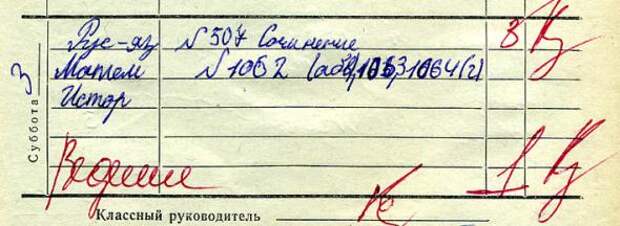 Суббота 3
Рус-яз № 507 Сочинение 3
Матем № 1062 (абв), 1063, 1064 (г)
Истор
Ведение 1
Классный руководитель